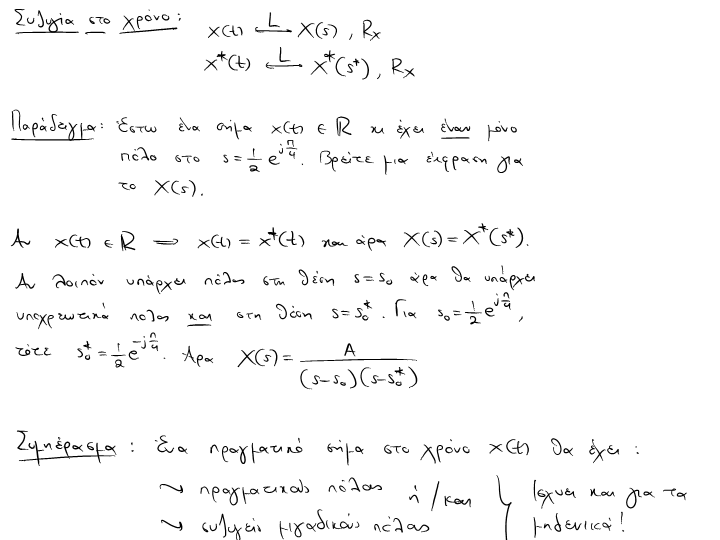 Συζυγία στο χρόνο: x(t) ⟷^L X(s), Rx
x*(t) ⟷^L X*(s*), Rx
Παράδειγμα: Έστω ένα σήμα x(t) ∈ ℝ κι έχει έναν μόνο
πόλο στο s = 1/2 e^{jπ/4}. Βρείτε μια έκφραση για
το X(s).
Αν x(t) ∈ ℝ ⟹ x(t) = x*(t) και άρα X(s) = X*(s*).
Αν λοιπόν υπάρχει πόλος στη θέση s = s₀ άρα θα υπάρχει
υποχρεωτικά πόλος και στη θέση s = s₀*. Για s₀ = 1/2 e^{jπ/4},
τότε s₀* = 1/2 e^{-jπ/4}. Άρα X(s) = A / ((s-s₀)(s-s₀*))
Συμπέρασμα: Ένα πραγματικό σήμα στο χρόνο x(t) θα έχει:
⤳ πραγματικούς πόλους ή/και } Ισχύει και για τα
⤳ συζυγείς μιγαδικούς πόλους } μηδενικά!